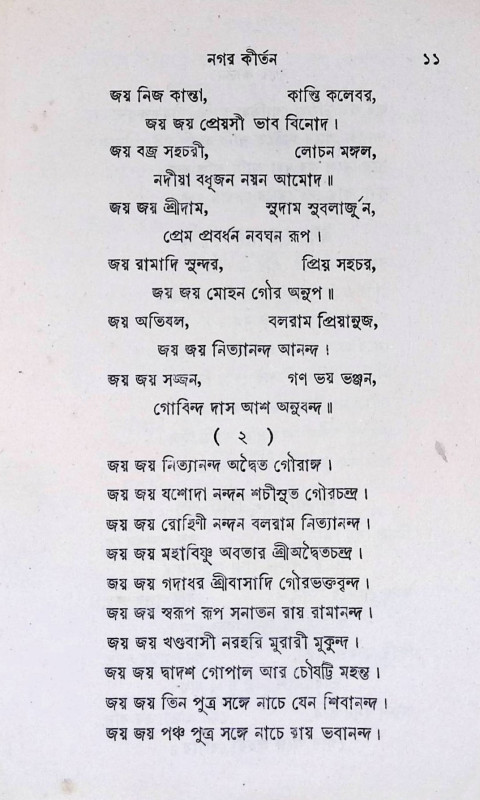 নগর কীর্তন ১১
জয় নিজ কান্তা, কান্তি কলেবর,
জয় জয় প্রেয়সী ভাব বিনোদ।
জয় বজ্র সহচরী, লোচন মঙ্গল,
নদীয়া বধূজন নয়ন আমোদ॥
জয় জয় শ্রীদাম, সুদাম সুবলার্জুন,
প্রেম প্রবর্ধন নবঘন রূপ।
জয় রামাদি সুন্দর, প্রিয় সহচর,
জয় জয় মোহন গৌর অনুপ॥
জয় অতিবল, বলরাম প্রিয়ানুজ,
জয় জয় নিত্যানন্দ আনন্দ।
জয় জয় সজ্জন, গণ ভয় ভঞ্জন,
গোবিন্দ দাস আশ অনুবন্দ॥
( ২ )
জয় জয় নিত্যানন্দ অদ্বৈত গৌরাঙ্গ।
জয় জয় যশোদা নন্দন শচীসুত গৌরচন্দ্র।
জয় জয় রোহিণী নন্দন বলরাম নিত্যানন্দ।
জয় জয় মহাবিষ্ণু অবতার শ্রীঅদ্বৈতচন্দ্র।
জয় জয় গদাধর শ্রীবাসাদি গৌরভক্তবৃন্দ।
জয় জয় স্বরূপ রূপ সনাতন রায় রামানন্দ।
জয় জয় খণ্ডবাসী নরহরি মুরারী মুকুন্দ।
জয় জয় দ্বাদশ গোপাল আর চৌষট্টি মহন্ত।
জয় জয় তিন পুত্র সঙ্গে নাচে যেন শিবানন্দ।
জয় জয় পঞ্চ পুত্র সঙ্গে নাচে রায় ভবানন্দ।